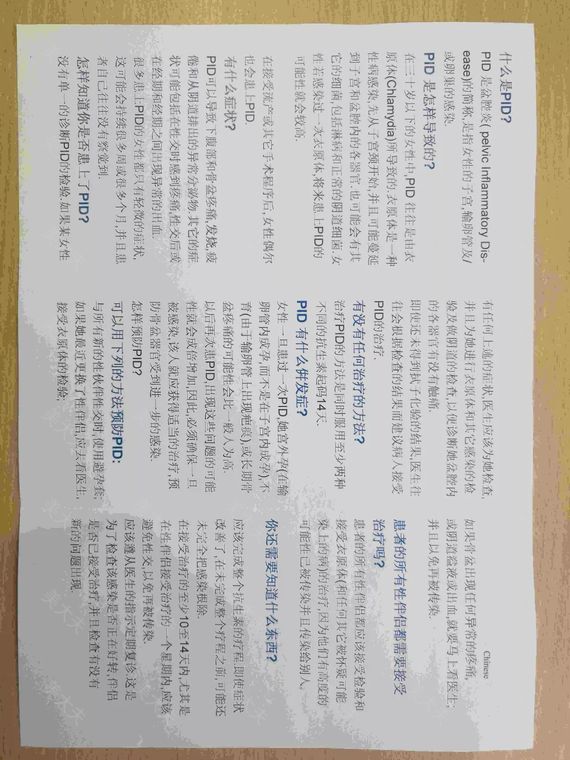 Chinese
什么是PID?
PID 是盆腔炎( pelvic Inflammatory Dis-
ease)的简称,是指女性的子宫,输卵管及/
或卵巢的感染.
PID 是怎样导致的?
在三十岁以下的女性中,PID 往往是由衣
原体(Chlamydia)所导致的.衣原体是一种
性病感染,先从子宫颈开始,并且可能蔓延
到子宫和盆腔内的各器官.也可能会有其
它的细菌,包括淋病和正常的阴道细菌.女
性若感染过一次衣原体,将来患上PID的
可能性就会较高.
在接受流产或其它手术程序后,女性偶尔
也会患上PID.
有什么症状?
PID可以导致下腹部和骨盆疼痛,发烧,疲
倦和从阴道排出的异常分泌物.其它的症
状可能包括在性交时感到疼痛,性交后或
在经期和经期之间出现异常的出血.
很多患上PID的女性都只有轻微的症状,
这可能会持续很多周或很多个月,并且患
者自己往往没有察觉到.
怎样知道你是否患上了PID?
没有单一的诊断PID的检验.如果某女性
有任何上述的症状,医生应该为她检查,
并且为她进行衣原体和其它感染的检
验及做阴道的检查,以便诊断她盆腔内
的各器官有没有触痛.
即使还未得到拭子化验的结果,医生往
往会根据检查的结果而建议病人接受
PID的治疗.
有没有任何治疗的方法?
治疗PID的方法是同时服用至少两种
不同的抗生素起码14天.
PID 有什么併发症?
女性一旦患过一次PID,她宫外孕(在输
卵管内成孕,而不是在子宫内成孕),不
育(由于输卵管上出现疤痕),或长期骨
盆疼痛的可能性会比一般人为高.
以后再次患PID,出现这些问题的可能
性就会成倍增加,因此,必须确保一旦
被感染,该人就应获得适当的治疗,预
防骨盆器官受到进一步的感染.
怎样预防PID?
可以用下列的方法预防PID:
与所有新的性伙伴性交时,使用避孕套;
如果她最近更换了性伴侣,应去看医生,
接受衣原体的检验;
如果骨盆出现任何异常的疼痛,
或阴道溢液或出血,就要马上看医生;
并且以免再被传染.
患者的所有性伴侣都需要接受
治疗吗?
患者的所有性伴侣都应该接受检验和
接受衣原体(和任何其它被怀疑可能
染上的病)的治疗,因为他们有高度的
可能性已被传染并且传染给别人.
你还需要知道什么东西?
应该完成整个抗生素的疗程,即使症状
改善了,在未完成整个疗程之前,可能还
未完全把感染根除.
在接受治疗的至少10至14天内,尤其是
在性伴侣接受治疗的一个星期内,应该
避免性交,以免再被传染.
应该遵从医生的指示定期复诊.这是
为了检查该感染是否正在好转,伴侣
是否已接受治疗,并且检查有没有
新的问题出现.